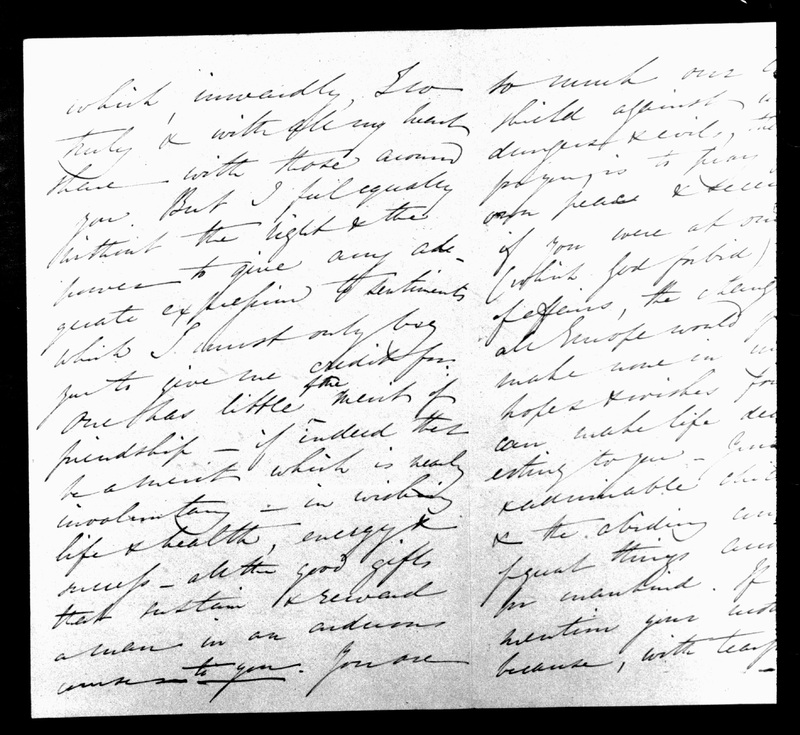 which, inwardly, I so
truly & with all my heart
share with those around
you. But I feel equally
without the right & the
power to give any ade-
quate expression to sentiments
which I must only beg
you to give me credit for.
One has little the merit of
friendship – if indeed there
be a merit which is nearly
involuntary – in wishing
life & health, energy &
success – all the good gifts
that sustain & reward
a man in an arduous
course – to you. You are
so much our
shield against
dangers & evils, that
praying is to
own peace &
if you were at
(which God forbid)
of affairs, the
all Europe would
make none in
hopes & wishes
can make life
esting to you –
& admirable
& the abiding
of great things
for mankind. If
mention your
because, with